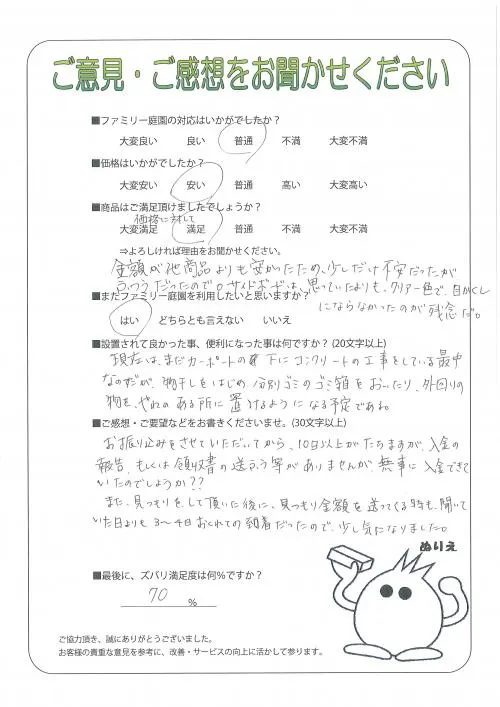 ご意見・ご感想をお聞かせください
■ファミリー庭園の対応はいかがでしたか？
大変良い 良い 普通 不満 大変不満
■価格はいかがでしたか？
大変安い 安い 普通 高い 大変高い
■商品はご満足頂けましたでしょうか？
価格に対して
大変満足 満足 普通 不満 大変不満
⇒よろしければ理由をお聞かせください。
金額が他商品よりも安かったため、少しだけ不安だったが
ふつうだったので。サイドボードは、思っていたよりも、クリアー色で、目かくし
にならなかったのが残念だ。
■またファミリー庭園を利用したいと思いますか？
はい どちらとも言えない いいえ
■設置されて良かった事、便利になった事は何ですか？ (20文字以上)
現在は、まだカーポートの下にコンクリートの工事をしている最中
なのだが、物干しをはじめ、分別ゴミのゴミ箱をおいたり、外回りの
物を、やねのある所に置けるようになる予定である。
■ご感想・ご要望などをお書きくださいませ。(30文字以上)
お振り込みをさせていただいてから、10日以上がたちますが、入金の
報告、もしくは領収書の送ふう等がありませんが、無事に入金できて
いたのでしょうか??
また、見つもりをして頂いた後に、見つもり金額を送ってくる時も、聞いて
いた日よりも3〜4日おくれての到着だったので、少し気になりました。
ぬりえ
■最後に、ズバリ満足度は何%ですか？
70 %
ご協力頂き、誠にありがとうございました。
お客様の貴重な意見を参考に、改善・サービスの向上に活かして参ります。